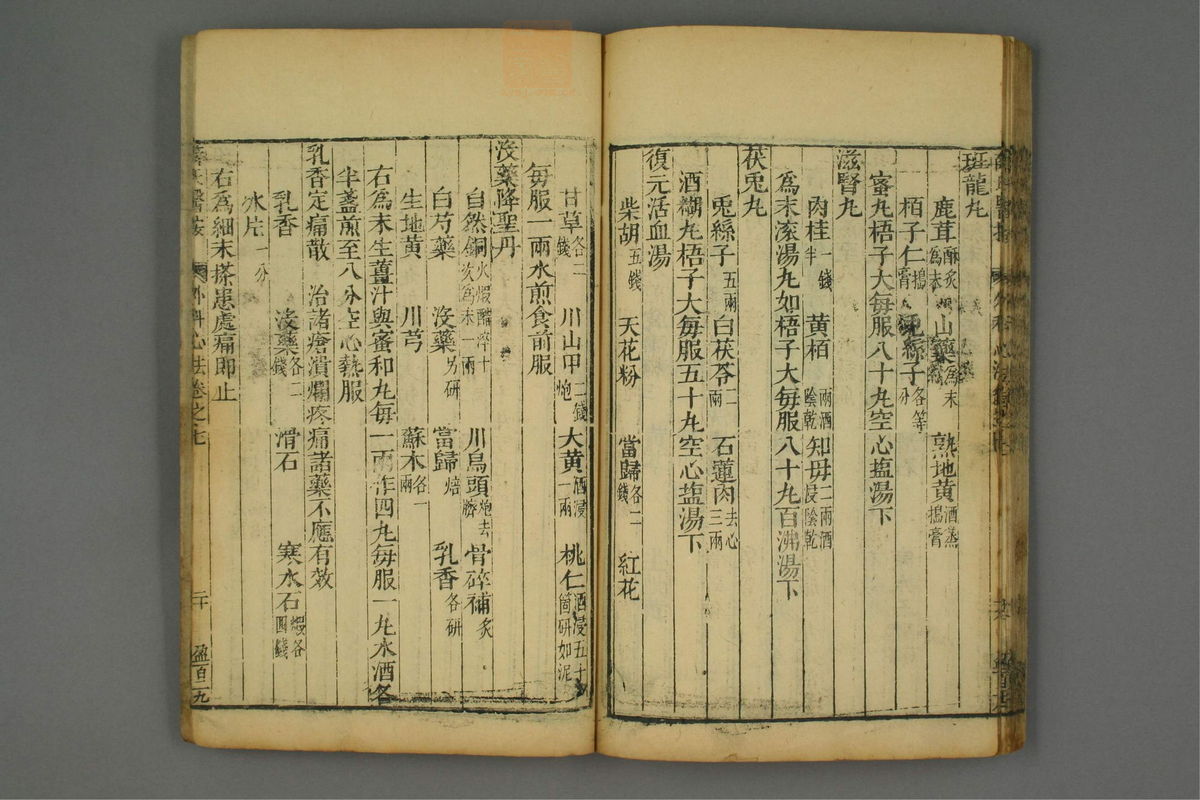 斑龍丸
鹿茸酥炙爲末 山藥爲末 熟地黃酒蒸搗膏
栢子仁搗霄 兎絲子各等分
蜜丸梧子大每服八十丸空心塩湯下
滋腎丸
肉桂一錢半 黃栢二兩酒陰乾 知母二兩酒浸陰乾
爲末滚湯丸如梧子大每服八十丸百沸湯下
茯兎丸
兎絲子五兩 白茯苓二兩 石蓮肉去心三兩
酒糊丸梧子大每服五十丸空心塩湯下
復元活血湯
柴胡五錢 天花粉 當歸各二錢 紅花
甘草各二錢 川山甲二錢炮 大黃酒浸一兩 桃仁酒浸五十箇研如泥
每服一兩水煎食前服
沒藥降聖丹
自然銅火煆醋淬十次爲末一兩 川烏頭炮去臍 骨碎補炙
白芍藥 沒藥另研 當歸焙 乳香各研
生地黃 川芎 蘇木各一兩
右爲末生薑汁與蜜和丸每一兩作四丸每服一丸水酒各
半盞煎至八分空心熱服
乳香定痛散 治諸瘡潰爛疼痛諸藥不應有效
乳香 沒藥各二錢 滑石 寒水石煆各四錢
氷片一分
右爲細末搽患處痛即止
薛氏醫按 外科心法卷之七 二十 盈百二九